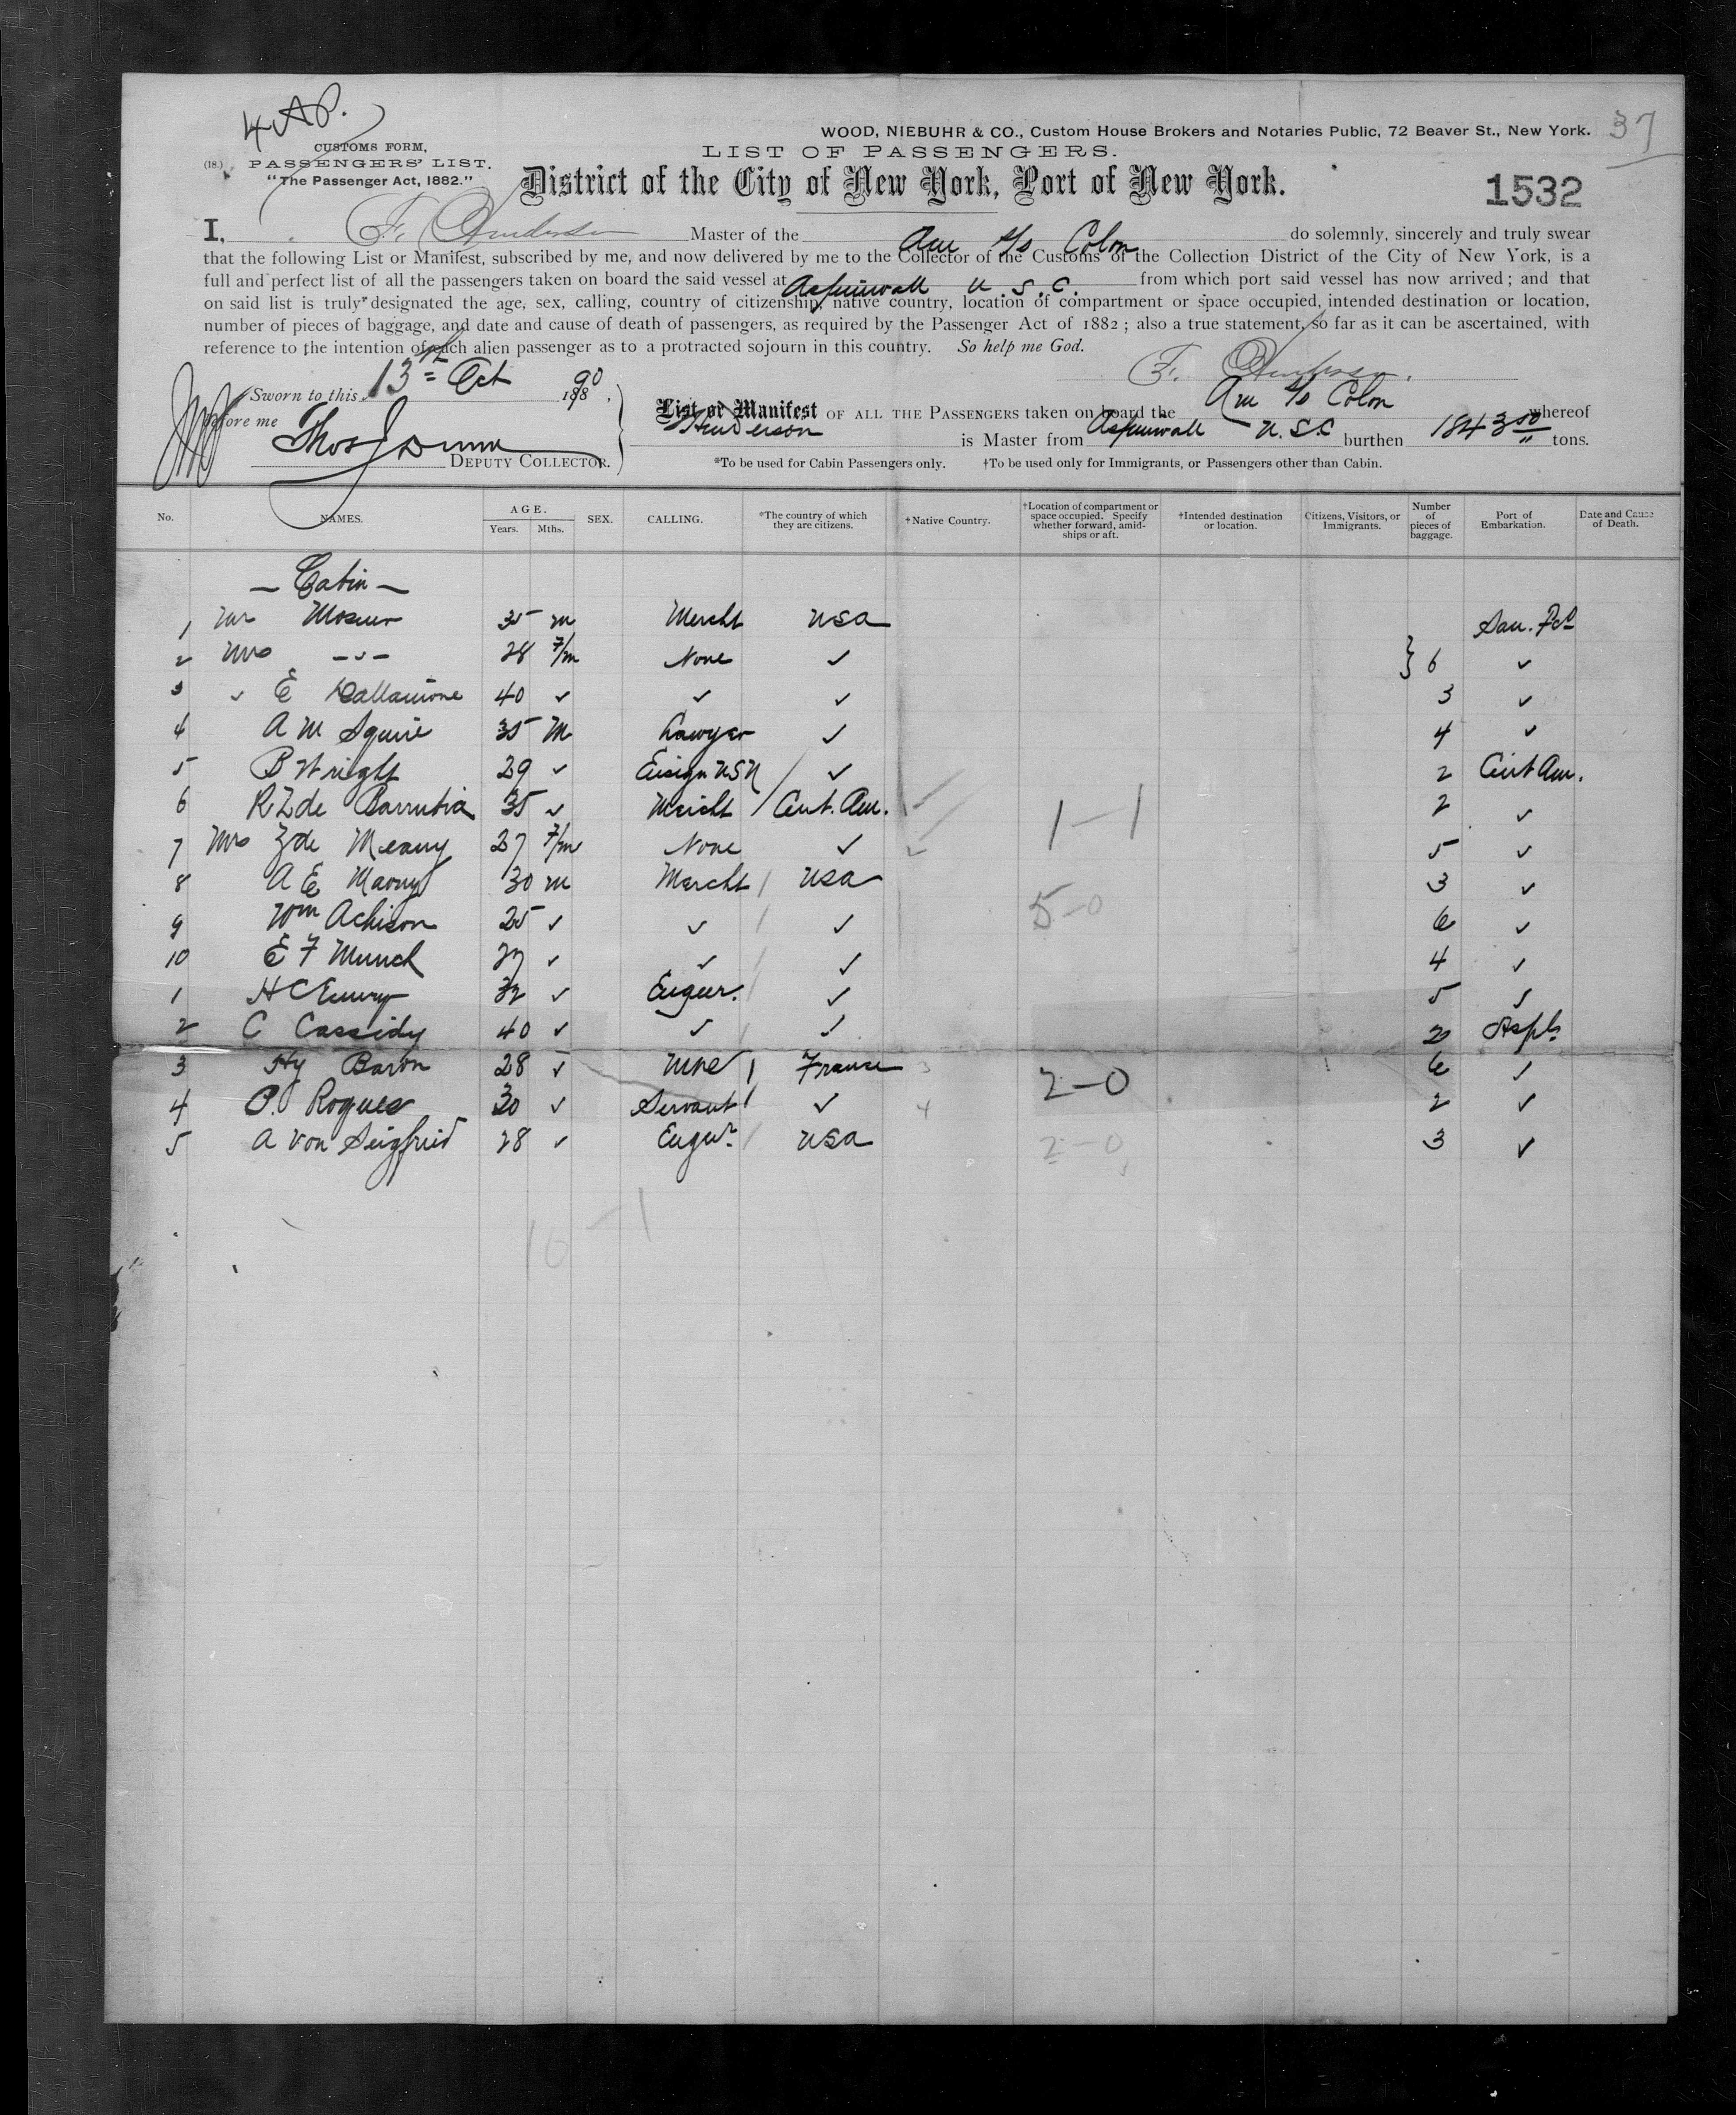 4 A P.
37
WOOD, NIEBUHR & CO., Custom House Brokers and Notaries Public, 72 Beaver St., New York.
CUSTOMS FORM,
LIST OF PASSENGERS.
(18.) PASSENGERS' LIST.
"The Passenger Act, 1882."
District of the City of New York, Port of New York.
1532
I, F. Henderson Master of the Am s/s Colon do solemnly, sincerely and truly swear
that the following List or Manifest, subscribed by me, and now delivered by me to the Collector of the Customs of the Collection District of the City of New York, is a
full and perfect list of all the passengers taken on board the said vessel at Aspinwall U.S.C. from which port said vessel has now arrived; and that
on said list is truly designated the age, sex, calling, country of citizenship, native country, location of compartment or space occupied, intended destination or location,
number of pieces of baggage, and date and cause of death of passengers, as required by the Passenger Act of 1882; also a true statement, so far as it can be ascertained, with
reference to the intention of each alien passenger as to a protracted sojourn in this country. So help me God.
F. Henderson.
Sworn to this 13th Oct 1890.
before me Thos J Dunn
DEPUTY COLLECTOR.
List or Manifest OF ALL THE PASSENGERS taken on board the Am s/s Colon whereof
Henderson is Master from Aspinwall U.S.C burthen 1843 50/" tons.
*To be used for Cabin Passengers only. †To be used only for Immigrants, or Passengers other than Cabin.
No. NAMES. AGE. Years. Mths. SEX. CALLING. *The country of which they are citizens. †Native Country. †Location of compartment or space occupied. Specify whether forward, amidships or aft. †Intended destination or location. Citizens, Visitors, or Immigrants. Number of pieces of baggage. Port of Embarkation. Date and Cause of Death.
— Cabin —
1 Mr 35 m Mercht USA San. Fco
2 Mrs -"- 28 F/m None ✓ } 6 ✓
3 ✓ E 40 ✓ ✓ ✓ 3 ✓
4 A M Squire 35 M Lawyer ✓ 4 ✓
5 B Wright 29 ✓ Ensign USN / ✓ 2 Cent Am.
6 R Z de Barrutia 35 ✓ Mercht / Cent. Am. ✓ 1-1 2 ✓
7 Mrs Z de Meany 27 F/m None ✓ ✓ 5 ✓
8 A E 30 m Mercht / USA 3 ✓
9 Wm Achison 25 ✓ ✓ / ✓ 5-0 6 ✓
10 E F Munch 27 ✓ ✓ / ✓ 4 ✓
1 H C Emery 32 ✓ Engeer. / ✓ 5 ✓
2 C Cassidy 40 ✓ ✓ / ✓ 2 Aspl
3 Hy Baron 28 ✓ None / France 3 2-0 6 ✓
4 P. Rogues 30 ✓ Servant / ✓ 4 2 ✓
5 A von Seigfried 28 ✓ Engr / USA 2-0 3 ✓
10 - 1